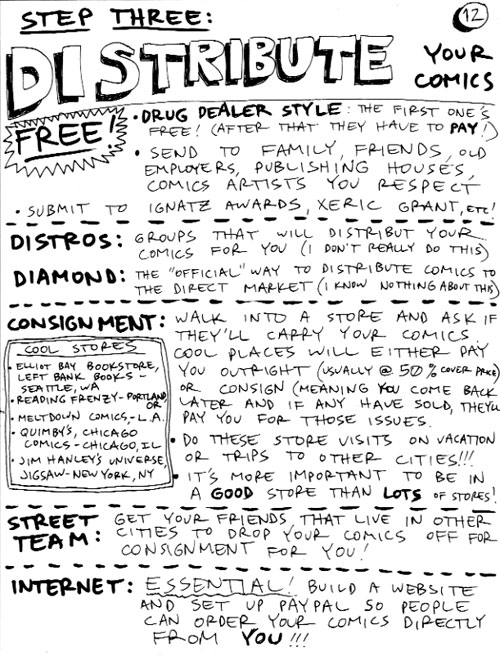 STEP THREE:
12
DISTRIBUTE YOUR COMICS
FREE!
• DRUG DEALER STYLE: THE FIRST ONE'S
FREE! (AFTER THAT THEY HAVE TO PAY!)
• SEND TO FAMILY, FRIENDS, OLD
EMPLOYERS, PUBLISHING HOUSES,
COMICS ARTISTS YOU RESPECT
• SUBMIT TO IGNATZ AWARDS, XERIC GRANT, ETC!
DISTROS: GROUPS THAT WILL DISTRIBUT YOUR
COMICS FOR YOU (I DON'T REALLY DO THIS)
DIAMOND: THE "OFFICIAL" WAY TO DISTRIBUTE COMICS TO
THE DIRECT MARKET (I KNOW NOTHING ABOUT THIS)
CONSIGNMENT: WALK INTO A STORE AND ASK IF
THEY'LL CARRY YOUR COMICS.
COOL PLACES WILL EITHER PAY
YOU OUTRIGHT (USUALLY @ 50% COVER PRICE)
OR CONSIGN (MEANING YOU COME BACK
LATER AND IF ANY HAVE SOLD, THEY'LL
PAY YOU FOR THOSE ISSUES.
• DO THESE STORE VISITS ON VACATION
OR TRIPS TO OTHER CITIES!!!
• IT'S MORE IMPORTANT TO BE IN
A GOOD STORE THAN LOTS OF STORES!
COOL STORES
• ELLIOT BAY BOOKSTORE,
LEFT BANK BOOKS -
SEATTLE, WA
• READING FRENZY - PORTLAND,
OR
• MELTDOWN COMICS, - L.A.
• QUIMBY'S, CHICAGO
COMICS - CHICAGO, IL
• JIM HANLEY'S UNIVERSE,
JIGSAW - NEW YORK, NY
STREET TEAM: GET YOUR FRIENDS THAT LIVE IN OTHER
CITIES TO DROP YOUR COMICS OFF FOR
CONSIGNMENT FOR YOU!
INTERNET: ESSENTIAL! BUILD A WEBSITE
AND SET UP PAYPAL SO PEOPLE
CAN ORDER YOUR COMICS DIRECTLY
FROM YOU!!!